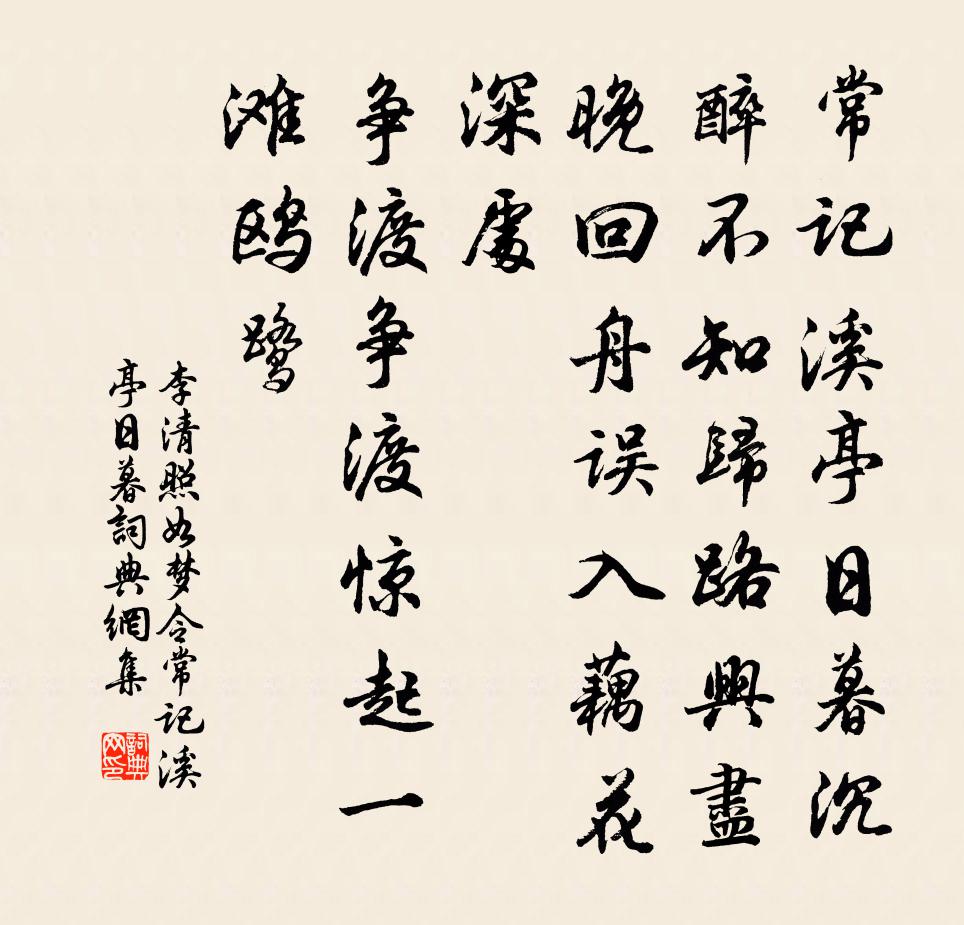 常记溪亭日暮沉
醉不知歸路興盡
晚回舟误入藕花
深處
争渡争渡惊起一
滩鸥鹭
李清照如梦令常记溪
亭日暮詞典網集
詞典网印